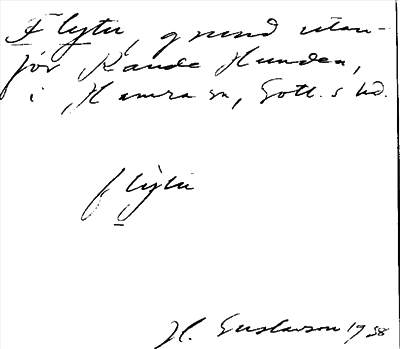 Flytu, grund utan-
för Raude Hunden,
i Hamra sn, Gotl. s hd.
flytu
H. Gustavson 1938